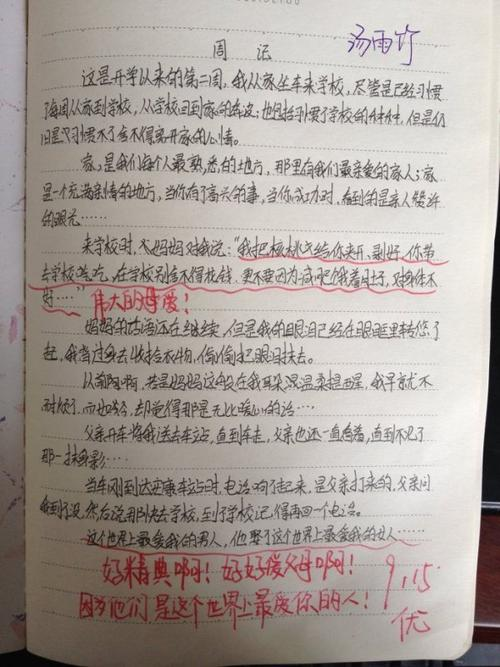 周记
汤雨竹
这是开学以来的第二周，我从家坐车来学校，尽管是已经习惯
了每周从家到学校，从学校回到家的奔波，也包括习惯了学校的种种，但是仍
旧是习惯不了舍不得离开家的心情。
家，是我们每个人最熟悉的地方，那里有我们最亲爱的家人；家
是一个充满亲情的地方，当你有了高兴的事，当你成功时，看到的是亲人赞许
的眼光……
来学校时，妈妈对我说："我把核桃给你夹开、剥好，你带
去学校吃，在学校别舍不得花钱，更不要因为减肥饿着肚子，对身体不
好……"
伟大的母爱！
妈妈的话语还在继续，但是我的眼泪已经在眼眶里转悠了
起，我背过身去收拾衣物，偷偷把眼泪抹去。
从前啊啊，若是妈妈这般在我耳朵温柔提醒，我早就不
耐烦了，而如今，却觉得那是无比暖心的话…
父亲开车将我送去车站，直到车走，父亲也还一直看着，直到不见了
那一抹身影…
当车刚到达安康车站时，电话响了起来，是父亲打来的，父亲问
我到了没，然后说那快去学校，到了学校记得再回一个电话。
这个世界上最爱我的男人，他娶了这个世界上最爱我的女人……
好精典啊！好好爱父母啊！
因为他们是这个世界上最爱你的人！
9.15
优